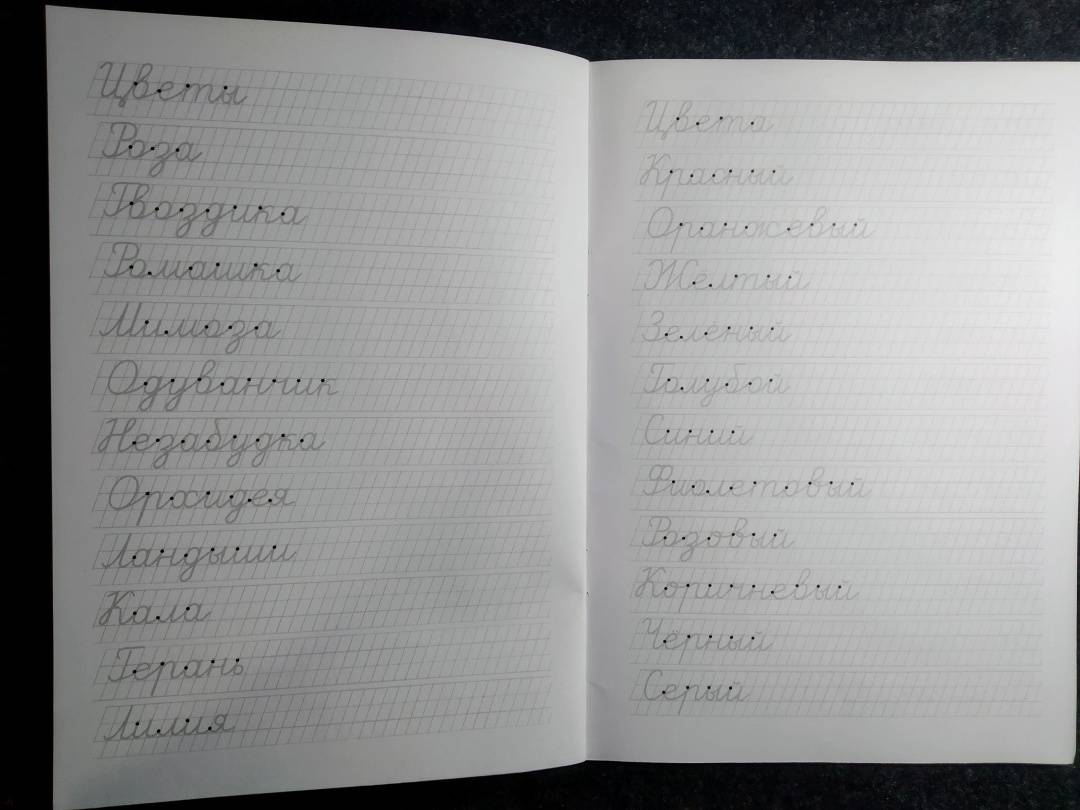 Цветы
Роза
Гвоздика
Ромашка
Мимоза
Одуванчик
Незабудка
Орхидея
Ландыши
Кала
Герань
Лилия
Цвета
Красный
Оранжевый
Жёлтый
Зелёный
Голубой
Синий
Фиолетовый
Розовый
Коричневый
Чёрный
Серый